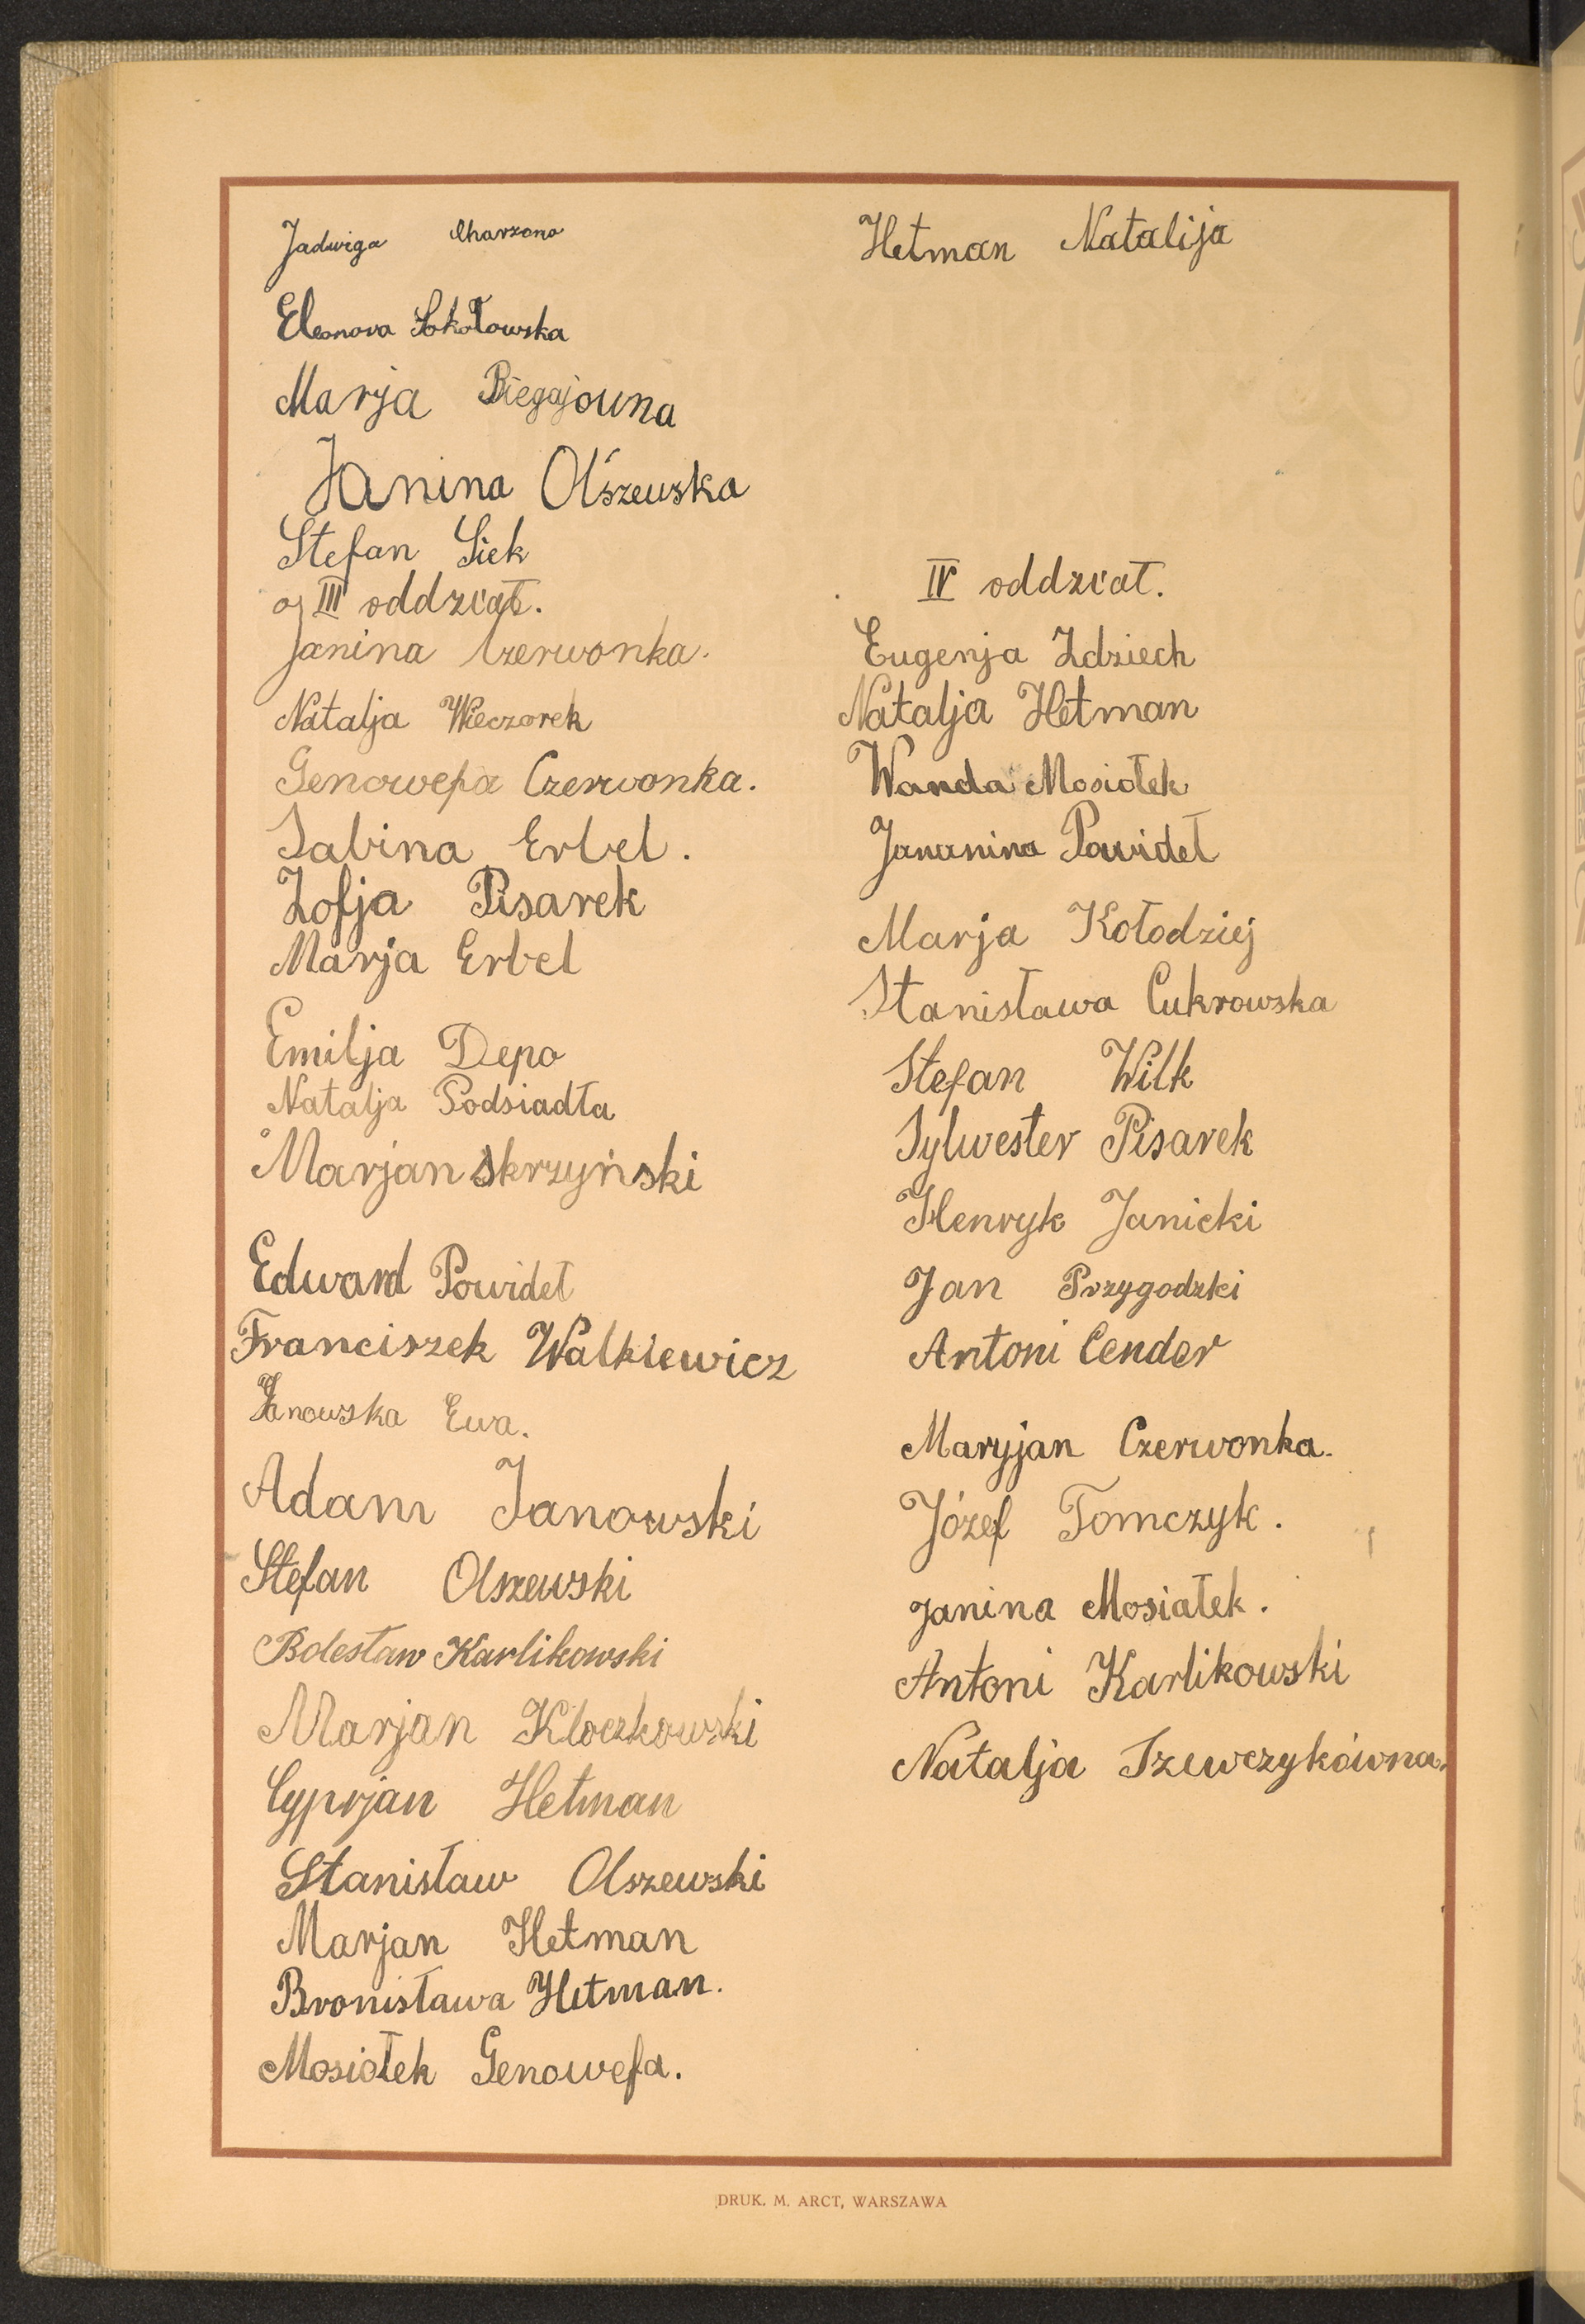 Jadwiga Charzona
Eleonora Sokołowska
Marja Biegajouna
Janina Olszewska
Stefan Siek
III oddział.
Janina Czerwonka.
Natalja Wieczorek
Genowefa Czerwonka.
Sabina Erbel.
Zofja Pisarek
Marja Erbel
Emilja Depo
Natalja Podsiadła
Marjan Skrzyński
Edward Powideł
Franciszek Walkiewicz
Janowska Ewa.
Adam Janowski
Stefan Olszewski
Bolesław Karlikowski
Marjan Kloczkowski
Cyprjan Hetman
Stanisław Olszewski
Marjan Hetman
Bronisława Hetman.
Mosiołek Genowefa.
Hetman Natalija
IV oddział.
Eugenja Zdziech
Natalja Hetman
Wanda Mosiołek
Jananina Powideł
Marja Kołodziej
Stanisława Cukrowska
Stefan Wilk
Sylwester Pisarek
Henryk Janicki
Jan Przygodzki
Antoni Cender
Maryjan Czerwonka.
Józef Tomczyk.
Janina Mosiałek.
Antoni Karlikowski
Natalja Szewczykówna.
DRUK. M. ARCT, WARSZAWA